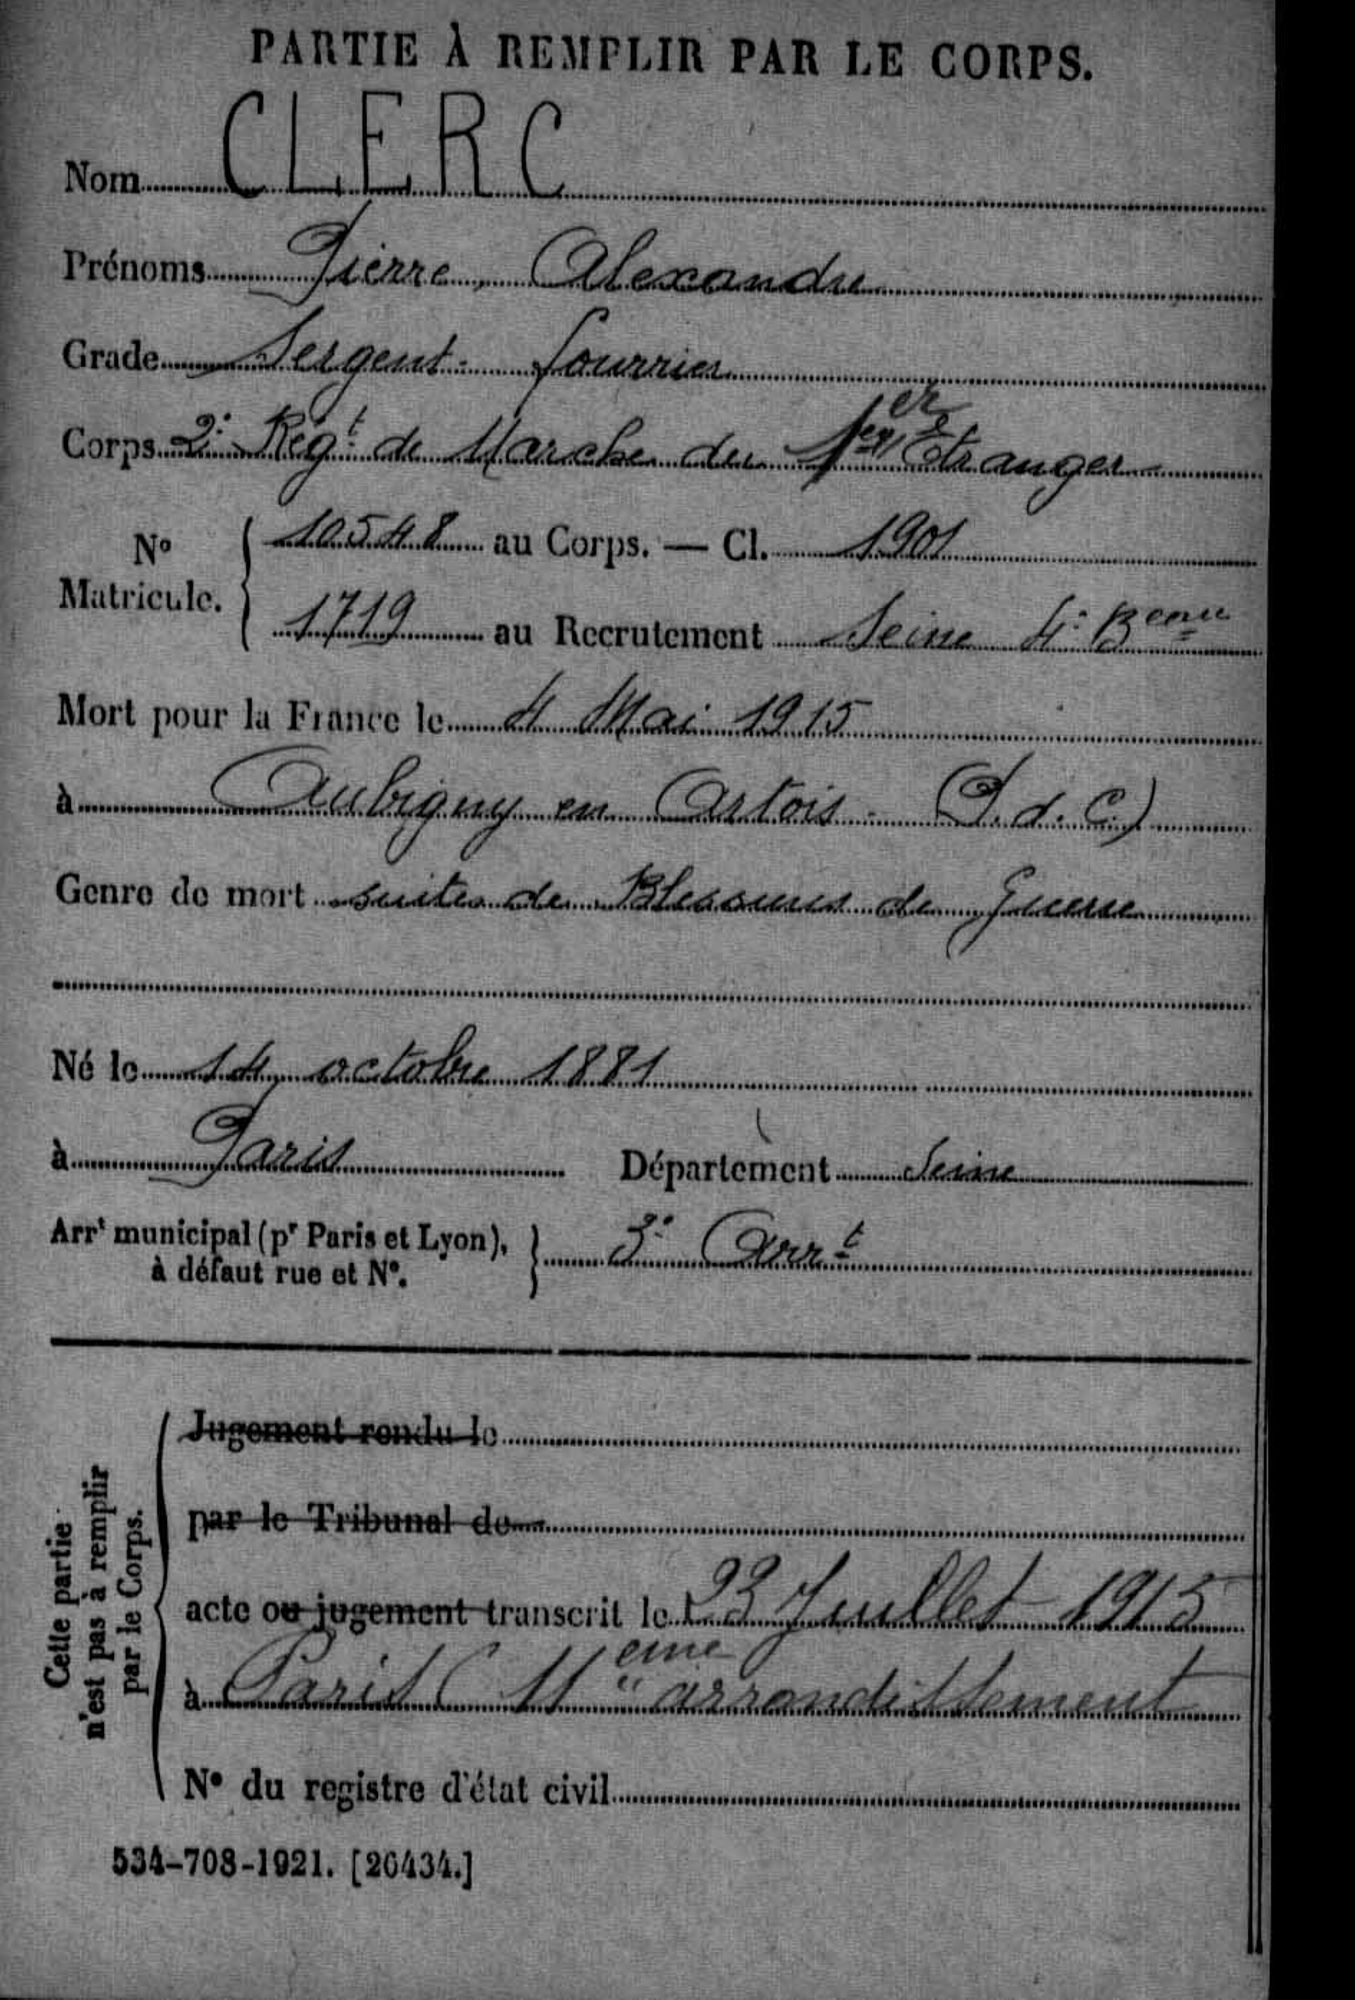 PARTIE À REMPLIR PAR LE CORPS.
Nom CLERC
Prénoms Pierre, Alexandre
Grade Sergent-fourrier
Corps 2e Régt de Marche du 1er Etranger
No Matricule. 10548 au Corps. — Cl. 1901
1719 au Recrutement Seine 4e Beau
Mort pour la France le 4 Mai 1915
à Aubigny en Artois - (P. d. C.)
Genre de mort suites de Blessures de Guerre
Né le 14 octobre 1881
à Paris Département Seine
Arrt municipal (pr Paris et Lyon), à défaut rue et No. 3e Arrt
Cette partie n'est pas à remplir par le Corps.
Jugement rendu le
par le Tribunal de
acte ou jugement transcrit le 23 Juillet 1915
à Paris (11eme arrondissement
No du registre d'état civil
534-708-1921. [26434.]